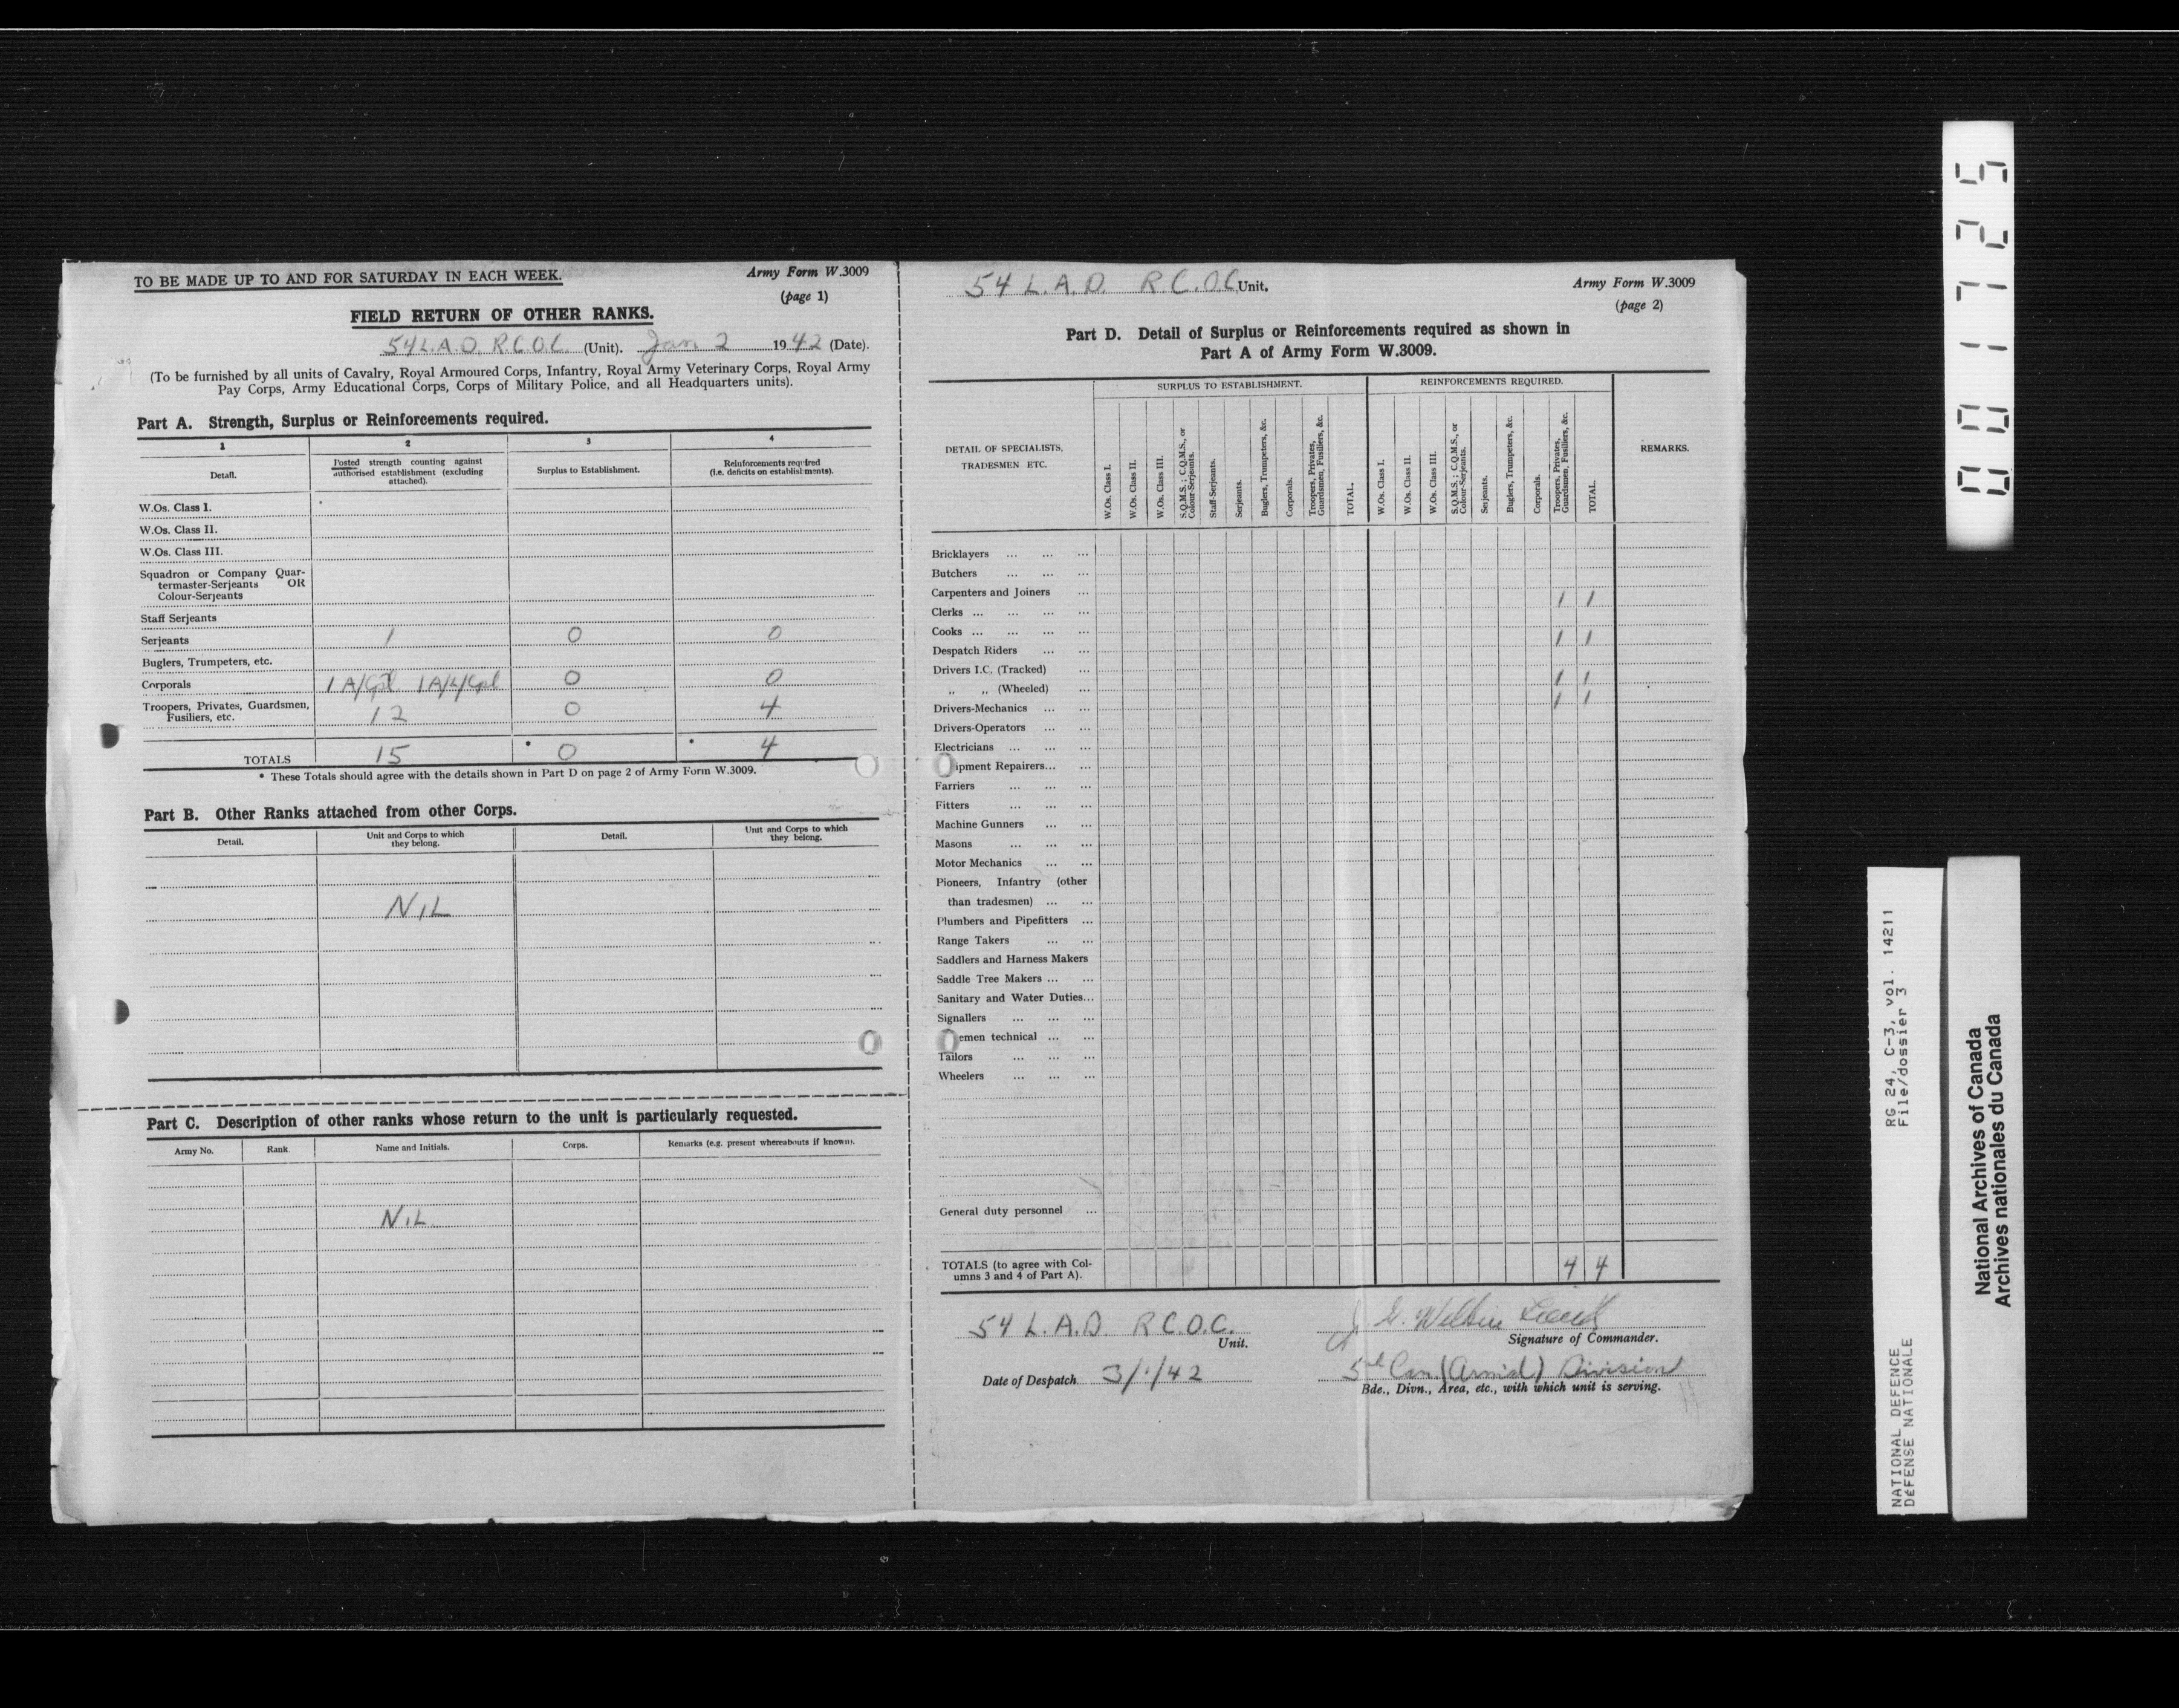 TO BE MADE UP TO AND FOR SATURDAY IN EACH WEEK.
Army Form W.3009
(page 1)
FIELD RETURN OF OTHER RANKS.
54 L.A.D. R.C.O.C. (Unit). Jan 2 1942 (Date).
(To be furnished by all units of Cavalry, Royal Armoured Corps, Infantry, Royal Army Veterinary Corps, Royal Army
Pay Corps, Army Educational Corps, Corps of Military Police, and all Headquarters units).
Part A. Strength, Surplus or Reinforcements required.
1 2 3 4
Detail. Posted strength counting against authorised establishment (excluding attached). Surplus to Establishment. Reinforcements required (i.e. deficits on establishments).
W.Os. Class I.
W.Os. Class II.
W.Os. Class III.
Squadron or Company Quar-
termaster-Serjeants OR
Colour-Serjeants
Staff Serjeants
Serjeants 1 0 0
Buglers, Trumpeters, etc.
Corporals 1 A/Cpl 1 A/L/Cpl 0 0
Troopers, Privates, Guardsmen,
Fusiliers, etc. 12 0 4
TOTALS 15 * 0 * 4
* These Totals should agree with the details shown in Part D on page 2 of Army Form W.3009.
Part B. Other Ranks attached from other Corps.
Detail. Unit and Corps to which they belong. Detail. Unit and Corps to which they belong.
NIL
Part C. Description of other ranks whose return to the unit is particularly requested.
Army No. Rank Name and Initials. Corps. Remarks (e.g. present whereabouts if known).
NIL
54 L.A.D. R.C.O.C. Unit.
Army Form W.3009
(page 2)
Part D. Detail of Surplus or Reinforcements required as shown in
Part A of Army Form W.3009.
DETAIL OF SPECIALISTS, TRADESMEN ETC.
SURPLUS TO ESTABLISHMENT.
REINFORCEMENTS REQUIRED.
REMARKS.
W.Os. Class I.
W.Os. Class II.
W.Os. Class III.
S.Q.M.S.; C.Q.M.S., or Colour-Serjeants.
Staff-Serjeants.
Serjeants.
Buglers, Trumpeters, &c.
Corporals.
Troopers, Privates, Guardsmen, Fusiliers, &c.
TOTAL.
W.Os. Class I.
W.Os. Class II.
W.Os. Class III.
S.Q.M.S.; C.Q.M.S., or Colour-Serjeants.
Serjeants.
Buglers, Trumpeters, &c.
Corporals.
Troopers, Privates, Guardsmen, Fusiliers, &c.
TOTAL.
Bricklayers ... ... ...
Butchers ... ... ...
Carpenters and Joiners ...
Clerks ... ... ... ... 1 1
Cooks ... ... ... ...
Despatch Riders ... ... 1 1
Drivers I.C. (Tracked) ...
„ „ (Wheeled) ... 1 1
Drivers-Mechanics ... ... 1 1
Drivers-Operators ... ...
Electricians ... ... ...
ipment Repairers... ...
Farriers ... ... ...
Fitters ... ... ...
Machine Gunners ... ...
Masons ... ... ...
Motor Mechanics ... ...
Pioneers, Infantry (other
than tradesmen) ... ...
Plumbers and Pipefitters ...
Range Takers ... ...
Saddlers and Harness Makers
Saddle Tree Makers ... ...
Sanitary and Water Duties...
Signallers ... ... ...
emen technical ... ...
Tailors ... ... ...
Wheelers ... ... ...
General duty personnel ...
TOTALS (to agree with Col-
umns 3 and 4 of Part A). 4 4
54 L.A.D. R.C.O.C.
Unit.
Signature of Commander.
Date of Despatch 3/1/42
5th Can. (Armd) Division
Bde., Divn., Area, etc., with which unit is serving.
001725
RG 24, C-3, vol. 14211
File/dossier 3
NATIONAL DEFENCE
DÉFENSE NATIONALE
National Archives of Canada
Archives nationales du Canada